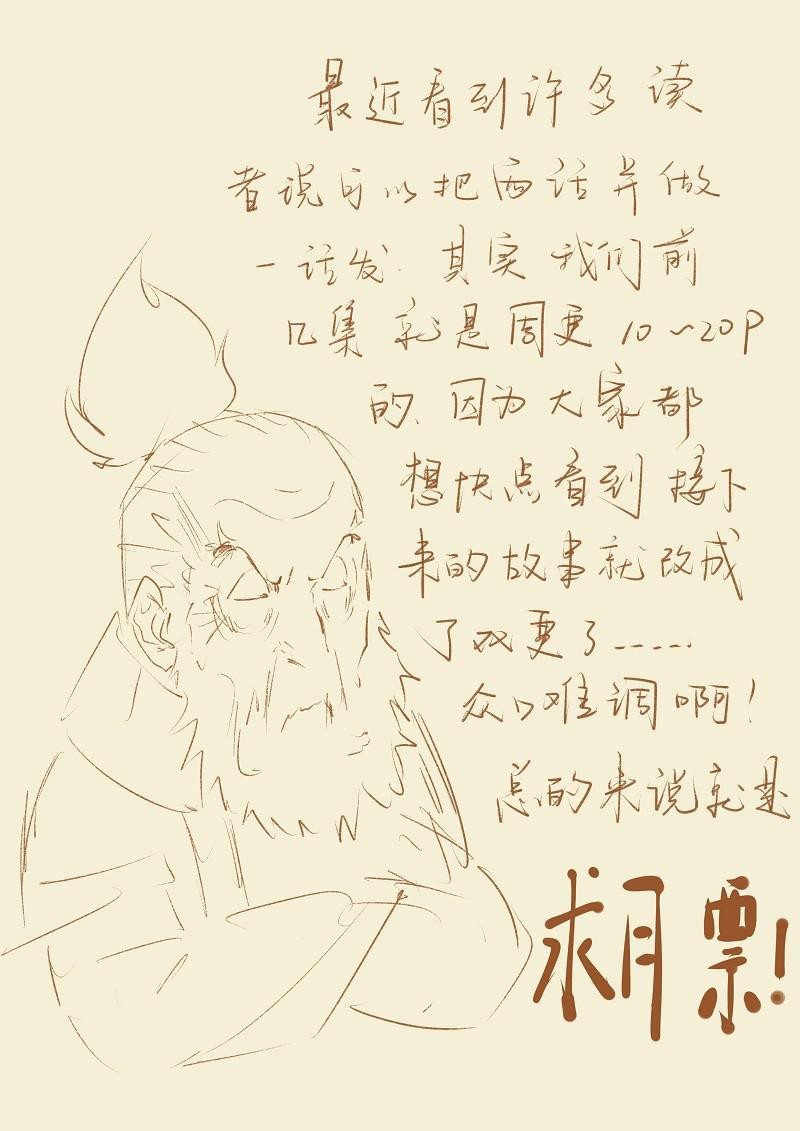 最近看到许多读
者说可以把两话并做
一话发.其实我们前
几集就是周更10~20P
的、因为大家都
想快点看到接下
来的故事就改成
了双更了......
众口难调啊!
总的来说就是
求月票!